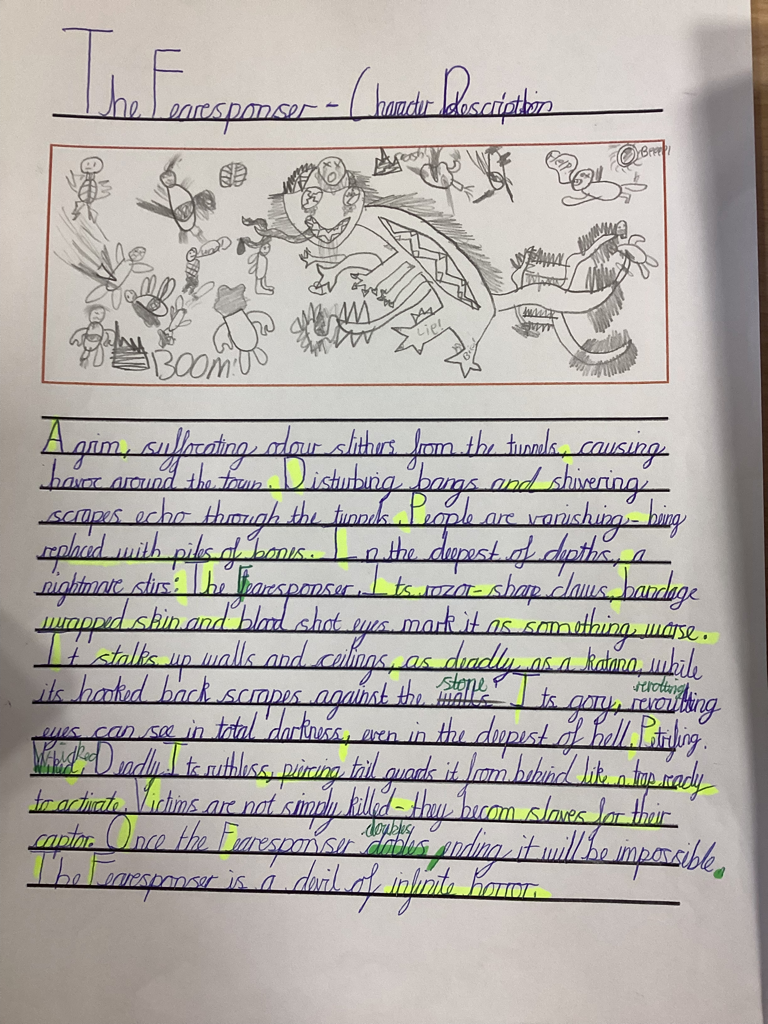 The Fearesponser - Character Description
Beeep!
BOOM!
Lip!
A grim, suffocating odour slithers from the tunnels, causing
havoc around the town. Disturbing bangs and shivering
scrapes echo through the tunnels. People are vanishing - being
replaced with piles of bones. In the deepest of depths, a
nightmare stirs: The Fearesponser. Its rozor-sharp claws, bandage
wrapped skin and blood shot eyes mark it as something worse.
It stalks up walls and ceilings, as deadly as a katana, while
stone revolting
its hooked back scrapes against the walls. Its gory, revoulting
eyes can see in total darkness, even in the deepest of hell. Petrifying.
Wicked. Deadly. Its ruthless, piercing tail guards it from behind like a trap ready
to activate. Victims are not simply killed - they becom slaves for their
doubles
captor. Once the Fearesponser dobles, ending it will be impossible.
The Fearesponser is a devil of infinite horror.